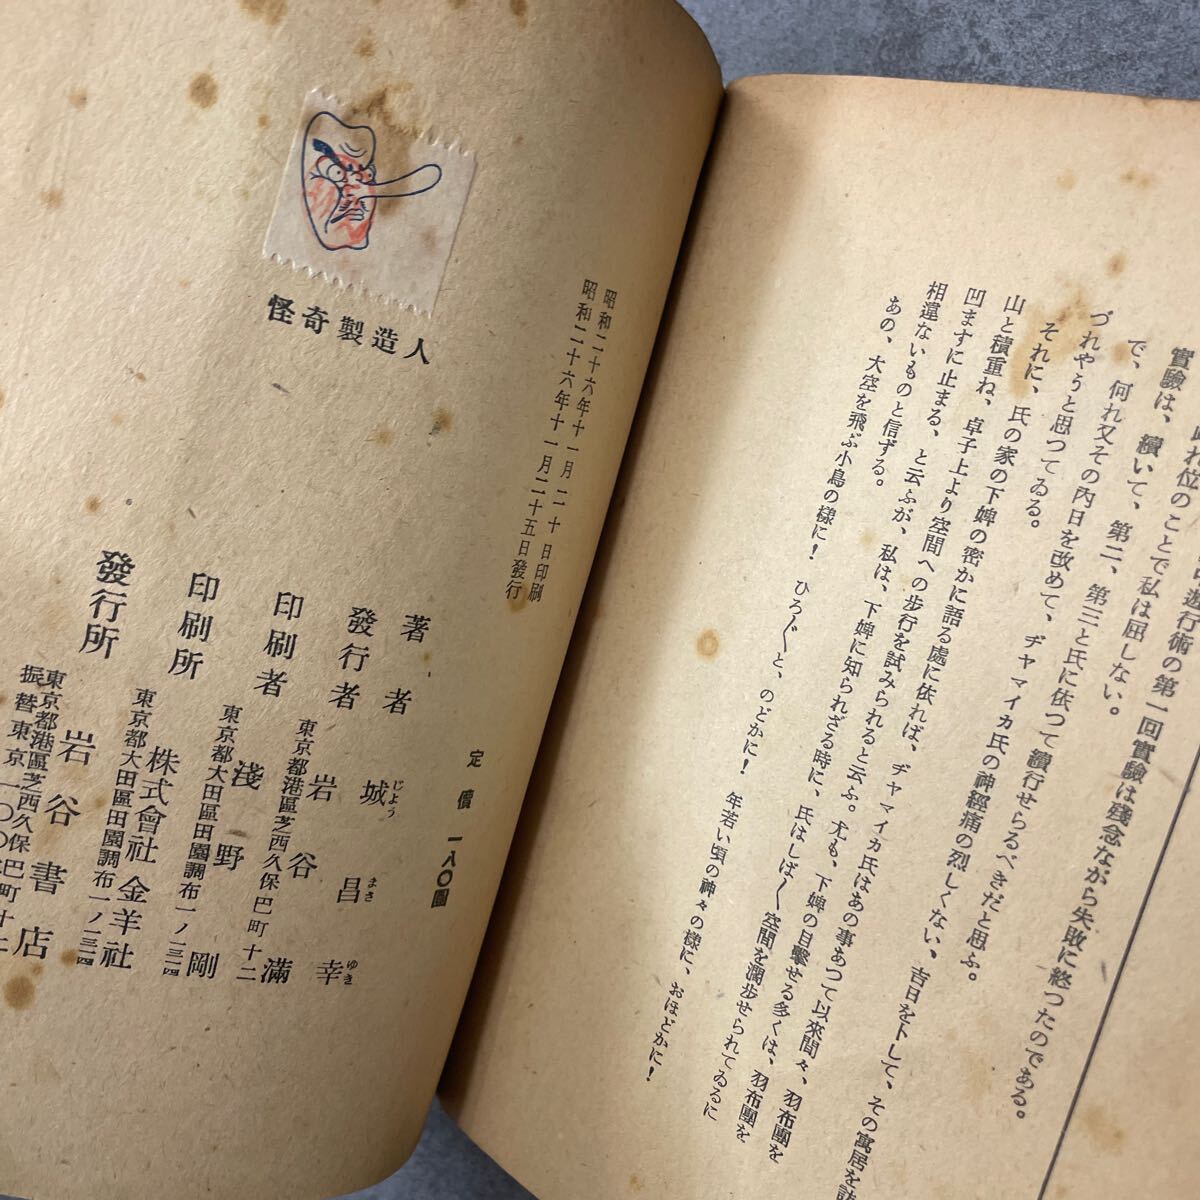 位のことで私は屈しない。
遊行術の第一回實驗は殘念ながら失敗に終つたのである。
實驗は、續いて、第二、第三と氏に依つて續行せらるべきだと思ふ。
で、何れ又その內日を改めて、ヂヤマイカ氏の神經痛の烈しくない、吉日をトして、その寓居を訪
づれやうと思つてゐる。
それに、氏の家の下婢の密かに語る處に依れば、ヂヤマイカ氏はあの事あつて以來間々、羽布團を
山と積重ね、卓子上より空間への步行を試みられると云ふ。尤も、下婢の目擊せる多くは、羽布團を
凹ますに止まる、と云ふが、私は、下婢に知られざる時に、氏はしば〱空間を濶步せられてゐるに
相違ないものと信ずる。
あの、大空を飛ぶ小鳥の樣に! ひろ〲と、のどかに! 年若い頃の神々の樣に、おほどかに!
怪奇製造人
昭和二十六年十一月二十日印刷
昭和二十六年十一月二十五日發行
定價 一八〇圓
著者 城昌幸
じょう まさ ゆき
發行者 岩谷滿
東京都港區芝西久保巴町十二
印刷者 淺野剛
東京都大田區田園調布一ノ一三四
印刷所 株式會社金羊社
東京都大田區田園調布一ノ一三四
發行所 岩谷書店
東京都港區芝西久保巴町十二
振替東京一〇〇